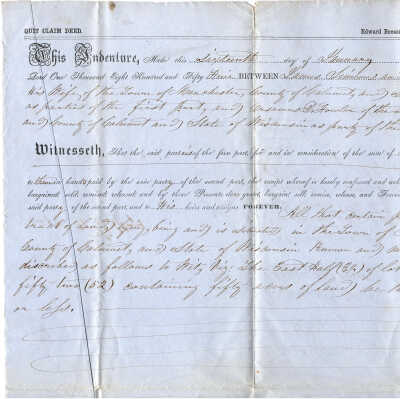 QUIT CLAIM DEED.
Edward
This Indenture, Made this Sixteenth day of January
One Thousand Eight Hundred and Fifty BETWEEN Thomas
his Wife, of the Town of Manchester, County of Calumet, and
as parties of the first part, and of the
and County of Calumet and State of Wisconsin as party of the
Witnesseth, That the said parties of the first part, for and in consideration of the sum of
to them in hand paid by the said party of the second part, the receipt whereof is hereby confessed and
bargained sold, remised released and by these Presents do grant, bargain, sell, remise, release, and
said party of the second part, and to His heirs and assigns FOREVER.
All that certain
tract of Land lying, being and is situated in the Town of
County of Calumet, and State of Wisconsin Known and
described as follows to Wit, Viz: The East half (E½) of lot
fifty two (52) containing fifty acres of land be the
or less.